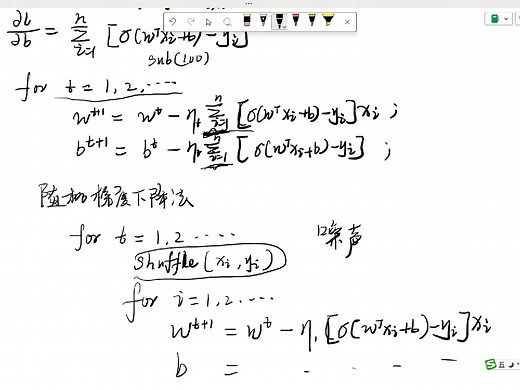 ∂L/∂b = Σ_{i=1}^{n} [σ(wᵀxᵢ+b)-yᵢ]
sub(100)
for t = 1,2,....
w^{t+1} = w^t - η_t Σ_{i=1}^{n} [σ(wᵀxᵢ+b)-yᵢ]xᵢ ;
b^{t+1} = b^t - η_t Σ_{i=1}^{n} [σ(wᵀxᵢ+b)-yᵢ] ;
随机梯度下降法
for t = 1,2 ....
噪声
shuffle(xᵢ,yᵢ)
for i = 1,2,....
w^{t+1} = w^t - η_t [σ(wᵀxᵢ+b)-yᵢ]xᵢ
b = - - -